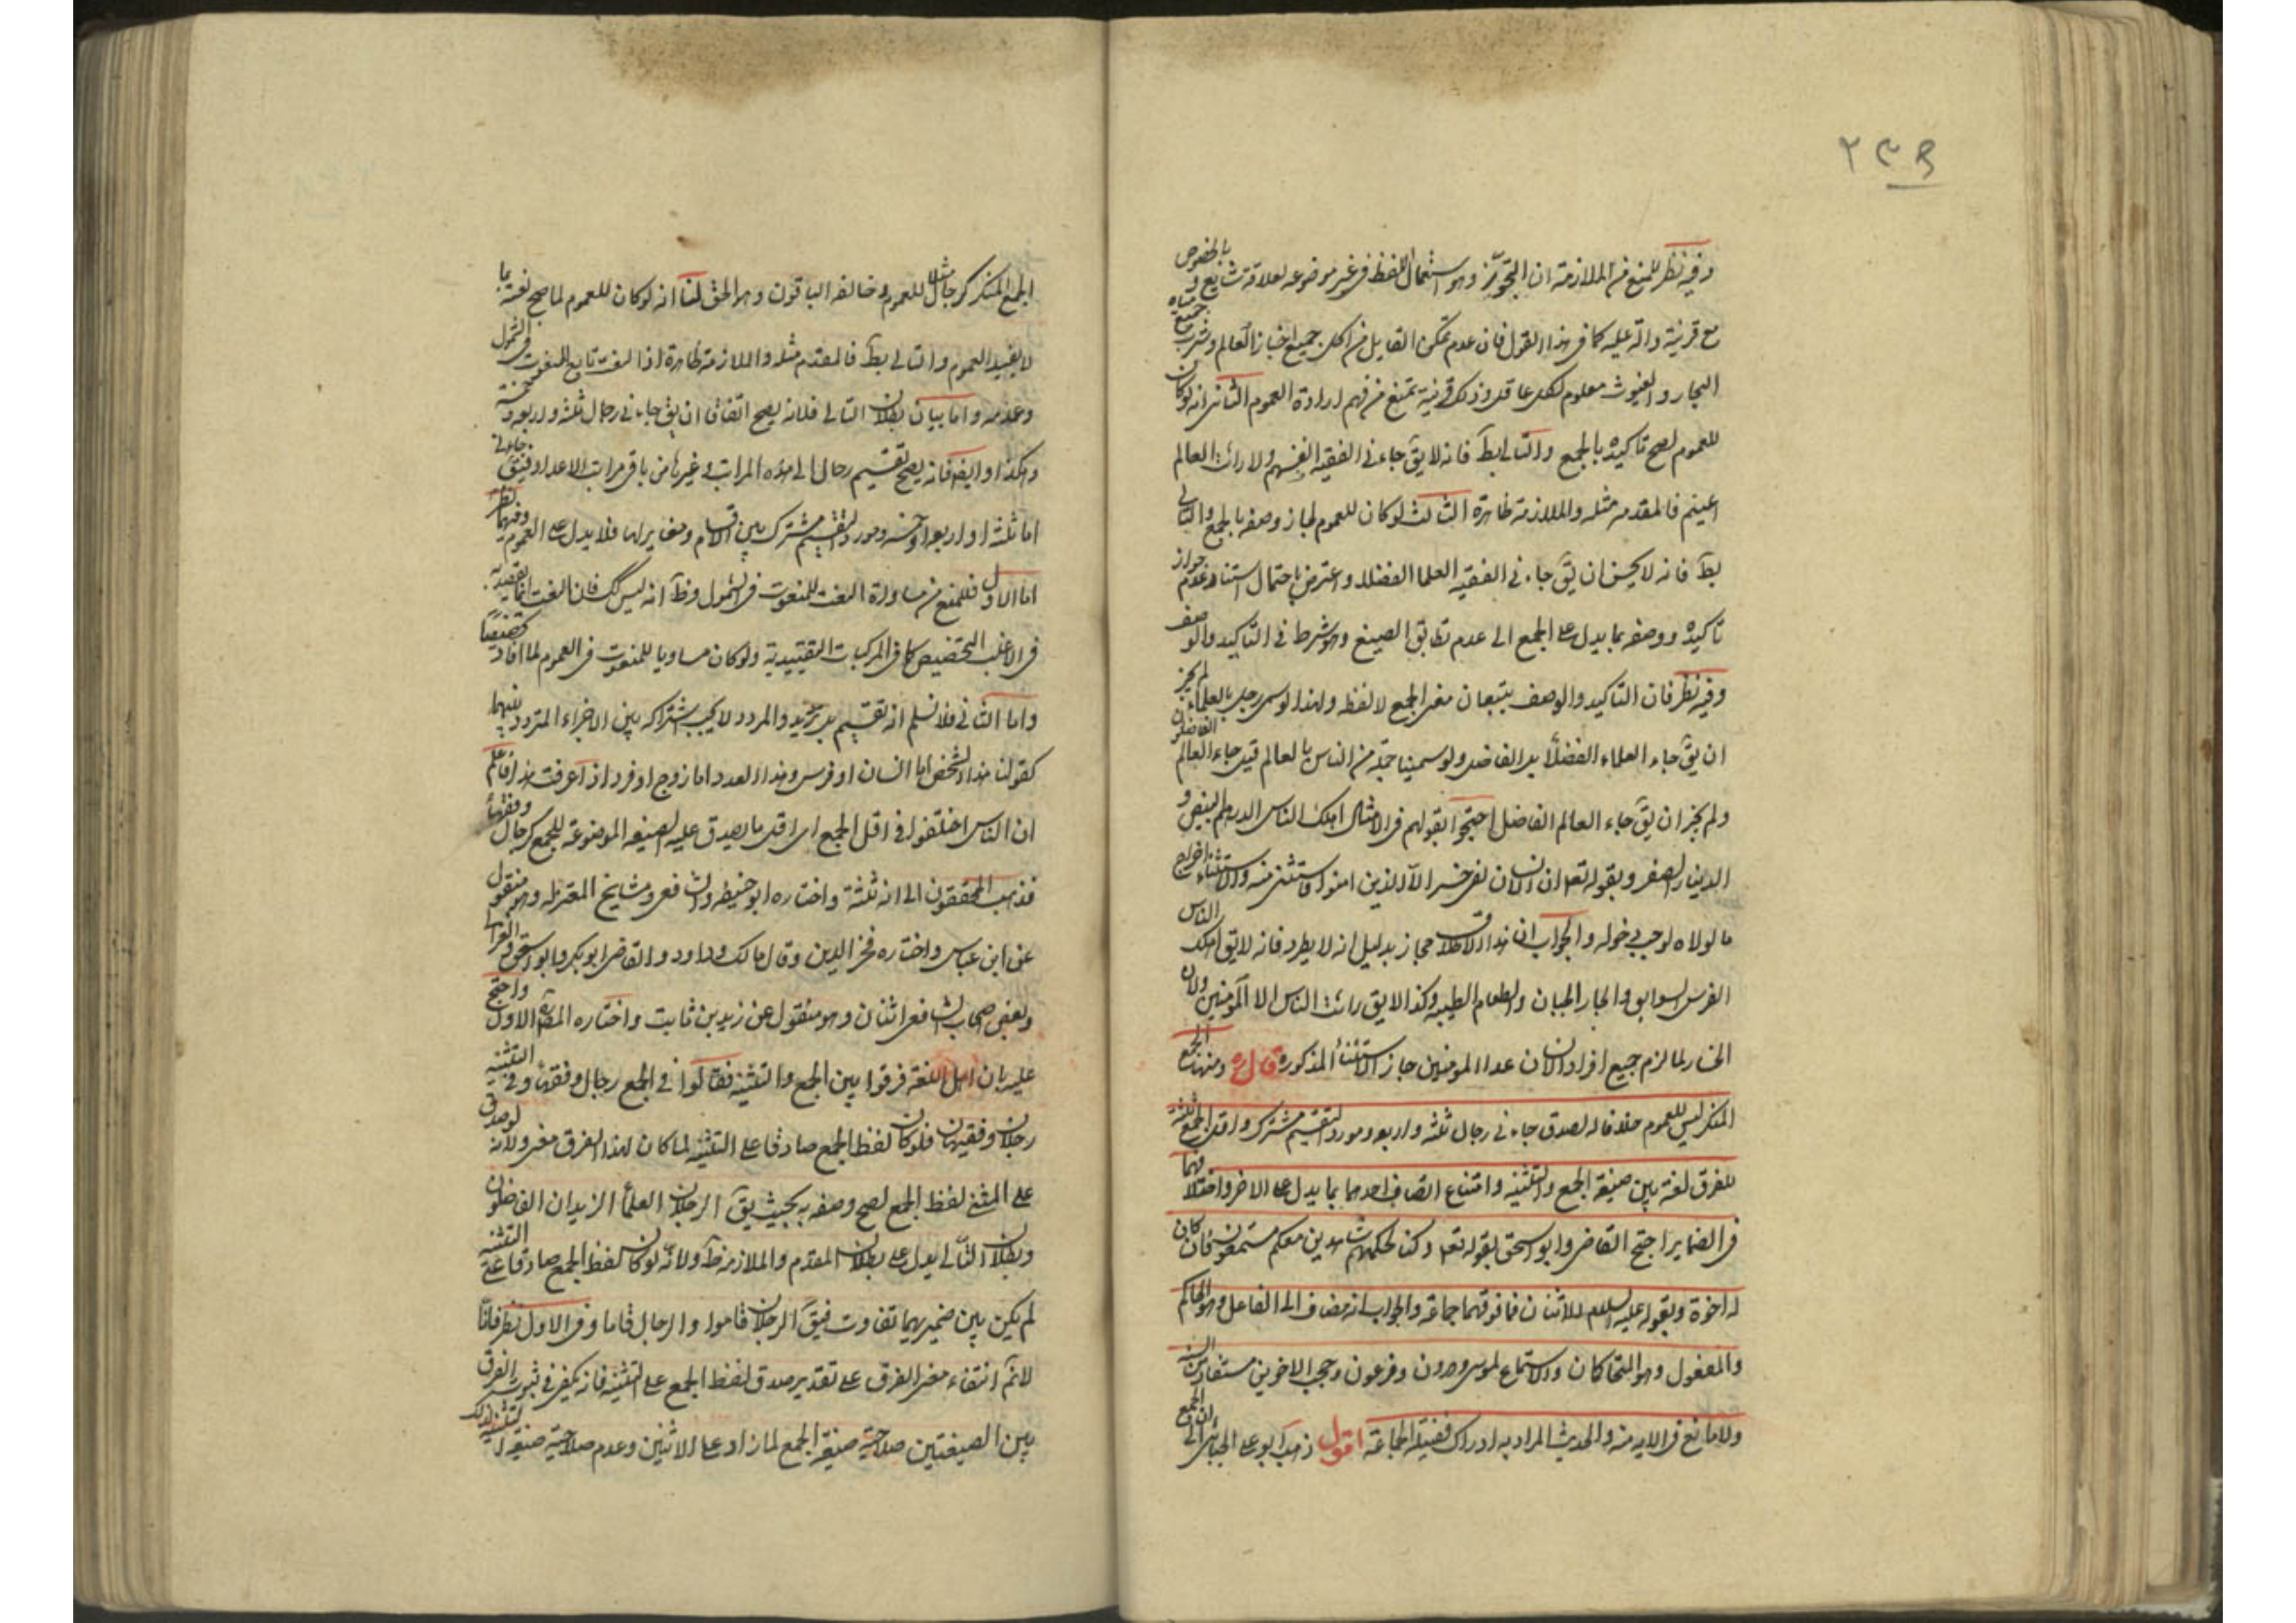 ٢٣٩
وفيه نظر للمنع من الملازمة ان التجوز وهو استعمال اللفظ في غير موضوعه لعلاقة شايع و بالخصوص
مع قرينة دالة عليه كما في هذا القول فان عدم تمكن القايل من اكل جميع اخباز العالم وشرب جميع مياه
البحار والغيوث معلوم لكل عاقل وذلك قرينة تمنع من فهم ارادة العموم الثاني انه لو كان
للعموم لصح تاكيده بالجمع والتالي بط فانه لا يق جاءني الفقيه انفسهم ولا رايت العالم
اعينهم فالمقدم مثله والملازمة ظاهرة الثالث لو كان للعموم لجاز وصفه بالجمع والتالي
بط فانه لا يحسن ان يق جاءني الفقيه العلما الفضلا واعترض باحتمال استناد عدم جواز
تاكيده ووصفه بما يدل على الجمع الى عدم تطابق الصيغ وهو شرط في التاكيد والوصف
وفيه نظر فان التاكيد والوصف يتبعان معنى الجمع لا لفظه ولهذا لو سمى رجل بالعلماء لم يجز
ان يق جاء العلماء الفضلا بل الفاضل ولو سمينا جملة من الناس بالعالم قيل جاء العالم الفاضلون
ولم يجز ان يق جاء العالم الفاضل احتجوا بقولهم في الامثال اهلك الناس الدرهم البيض و
الدينار الصفر وبقوله تعا ان الانسان لفي خسر الا الذين امنوا فاستثنى منه والاستثناء اخراج
ما لولاه لوجب دخوله والجواب ان هذا الاطلاق مجاز بدليل انه لا يطرد فانه لا يق اهلك الناس
الفرس السوابق والجار الجبان والطعام الطيبه وكذا لا يق رايت الناس الا المومنين ولان
الخسار لما لزم جميع افراد الانسان عدا المومنين جاز الاستثناء المذكوره قال ره ومنها ان الجمع
المنكر ليس للعموم خلافا له لصدق جاءني رجال ثلثه واربعه ومورد التقسيم مشترك واقل الجمع ثلثه
للفرق لغة بين صيغة الجمع والتثنيه وامتناع اتصاف احدهما بما يدل على الاخر واختلافهما
في الضماير احتج القاضي وابو اسحق بقوله تعا وكنا لحكمهم شاهدين معكم مستمعون فان كان
له اخوة وبقوله عليه السلام الاثنان فما فوقهما جماعة والجواب انه مضاف الى الفاعل وهو الحاكم
والمفعول وهو المتحاكمان والاستماع لموسى وهرون وفرعون وحجب الاخوين مستفاد من السنه
ولا مانع في الايه منه والحديث المراد به ادراك فضيلة الجماعة اقول ذهب ابو علي الجبائي الى ان الجمع
الجمع المنكر كرجال مثلا للعموم وخالفه الباقون وهو الحق لنا انه لو كان للعموم لما صح نعته بما
لا يفيد العموم والتالي بط فالمقدم مثله والملازمة ظاهرة اذا النعت تابع للمنعوت في الشمول
وعدمه واما بيان بطلان التالي فلانه يصح اتفاقا ان يق جاءني رجال ثلثه واربعه وخمسه
وهكذا وايضا فانه يصح تقسيم رجال الى هذه المراتب وغيرها من باقي مراتب الاعداد فيق جاءني
اما ثلثه او اربعه او خمسه ومورد التقسيم مشترك بين الاقسام ومغاير لها فلا يدل على العموم وفيهما نظر
اما الاول فللمنع من مساواة النعت للمنعوت في الشمول وظ انه ليس كك فان النعت انما يفيد به
في الاغلب التخصيص كما في المركبات التقييدية ولو كان مساويا للمنعوت في العموم لما افاد تخصيصا
واما الثاني فلا نسلم انه تقسيم بل ترديد والمردد لا يجب اشتراكه بين الاجزاء المتردد بينهما
كقولنا هذا الشخص اما انسان او فرس وهذا العدد اما زوج او فرد اذا عرفت هذا فاعلم
ان الناس اختلفوا في اقل الجمع اى اقل ما يصدق عليه الصيغه الموضوعة للجمع كرجال وفقهاء
فذهب المحققون الى انه ثلثة واختاره ابو حنيفه والشافعي ومشايخ المعتزله وهو منقول
عن ابن عباس واختاره فخر الدين وقال مالك وداود والقاضي ابو بكر وابو اسحق والغزالي
وبعض اصحاب الشافعي اثنان وهو منقول عن زيد بن ثابت واختاره المص الاول واحتج
عليه بان اهل اللغة فرقوا بين الجمع والتثنيه فقالوا في الجمع رجال وفقهاء وفي التثنيه
رجلان وفقيهان فلو كان لفظ الجمع صادقا على التثنيه لما كان لهذا الفرق معنى ولانه لو صدق
على المثنى لفظ الجمع لصح وصفه به بحيث يق الرجلان العلما الزيدان الفاضلون
وبطلان التالي يدل على بطلان المقدم والملازمه ظ ولانه لو كان لفظ الجمع صادقا على التثنيه
لم يكن بين ضميريهما تفاوت فيق الرجلان قاموا والرجال قاما وفي الاول نظر فانا
لانم انتفاء معنى الفرق على تقدير صدق لفظ الجمع على التثنيه فانه يكفي في ثبوت الفرق
بين الصيغتين صلاحية صيغة الجمع لما زاد على الاثنين وعدم صلاحية صيغة التثنيه لذلك